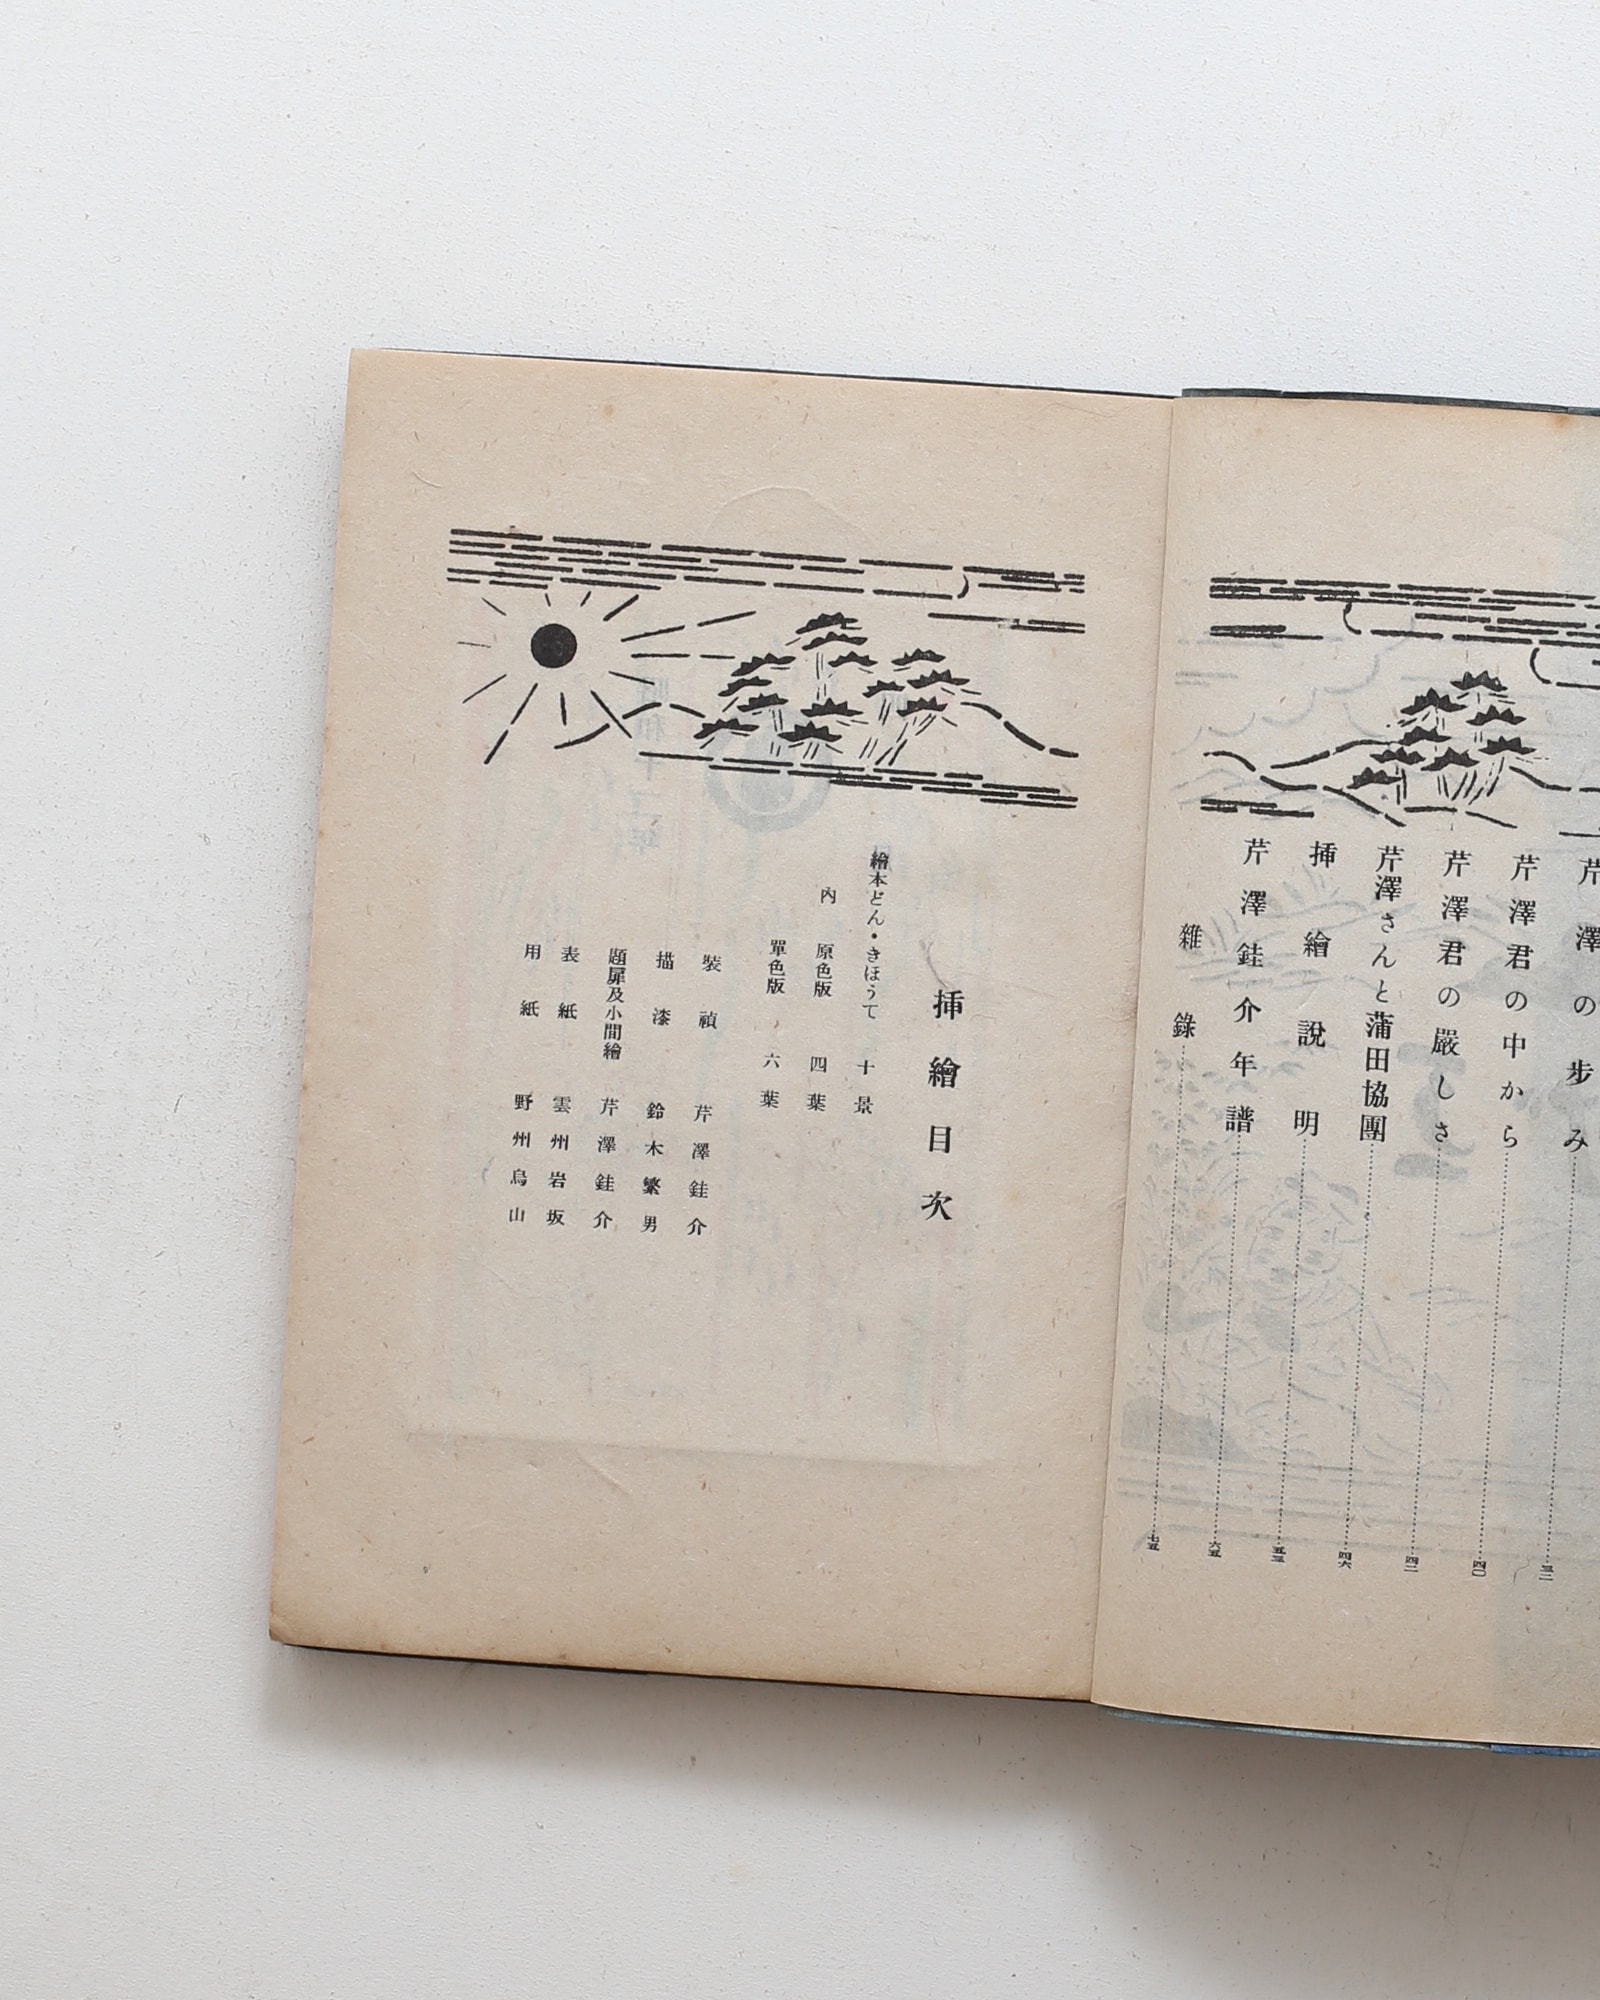 芹澤の歩み 三二
芹澤君の中から 四〇
芹澤君の嚴しさ 四二
芹澤さんと蒲田協團 四六
挿繪說明 五三
芹澤銈介年譜 六五
雜錄 七五
挿繪目次
繪本どん・きほうて 十景
內 原色版 四葉
單色版 六葉
裝幀 芹澤銈介
描漆 鈴木繁男
題扉及小間繪 芹澤銈介
表紙 雲州岩坂
用紙 野州烏山